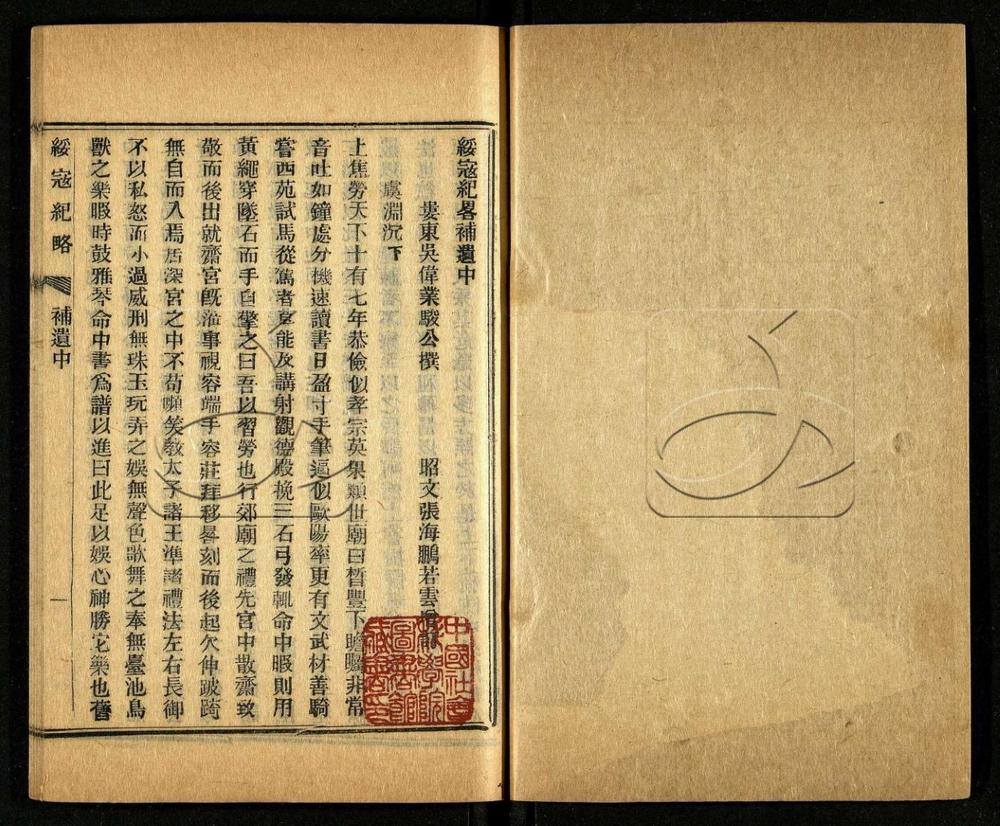 綏寇紀畧補遺中
婁東吳偉業駿公撰 昭文張海鵬若雲
虞淵沉下
上焦勞天下十有七年恭儉似孝宗英果類世廟白皙豐下瞻矚非常
音吐如鐘處分機速讀書日盈寸手筆逼似歐陽率更有文武材善騎
嘗西苑試馬從駕者莫能及講射觀德殿挽三石弓發輒命中暇則用
黃繩穿墜石而手自擎之曰吾以習勞也行郊廟之禮先宮中散齋致
敬而後出就齋宮旣涖事視容端手容莊拜移晷刻而後起欠伸跛踦
無自而入焉居深宮之中不苟嚬笑教太子諸王準諸禮法左右長御
不以私怒而小過威刑無珠玉玩弄之娛無聲色歌舞之奉無臺池鳥
獸之樂暇時鼓雅琴命中書爲譜以進曰此足以娛心神勝它樂也舊
綏寇紀略 補遺中 一
中國社會
科學院
圖書館
藏書印